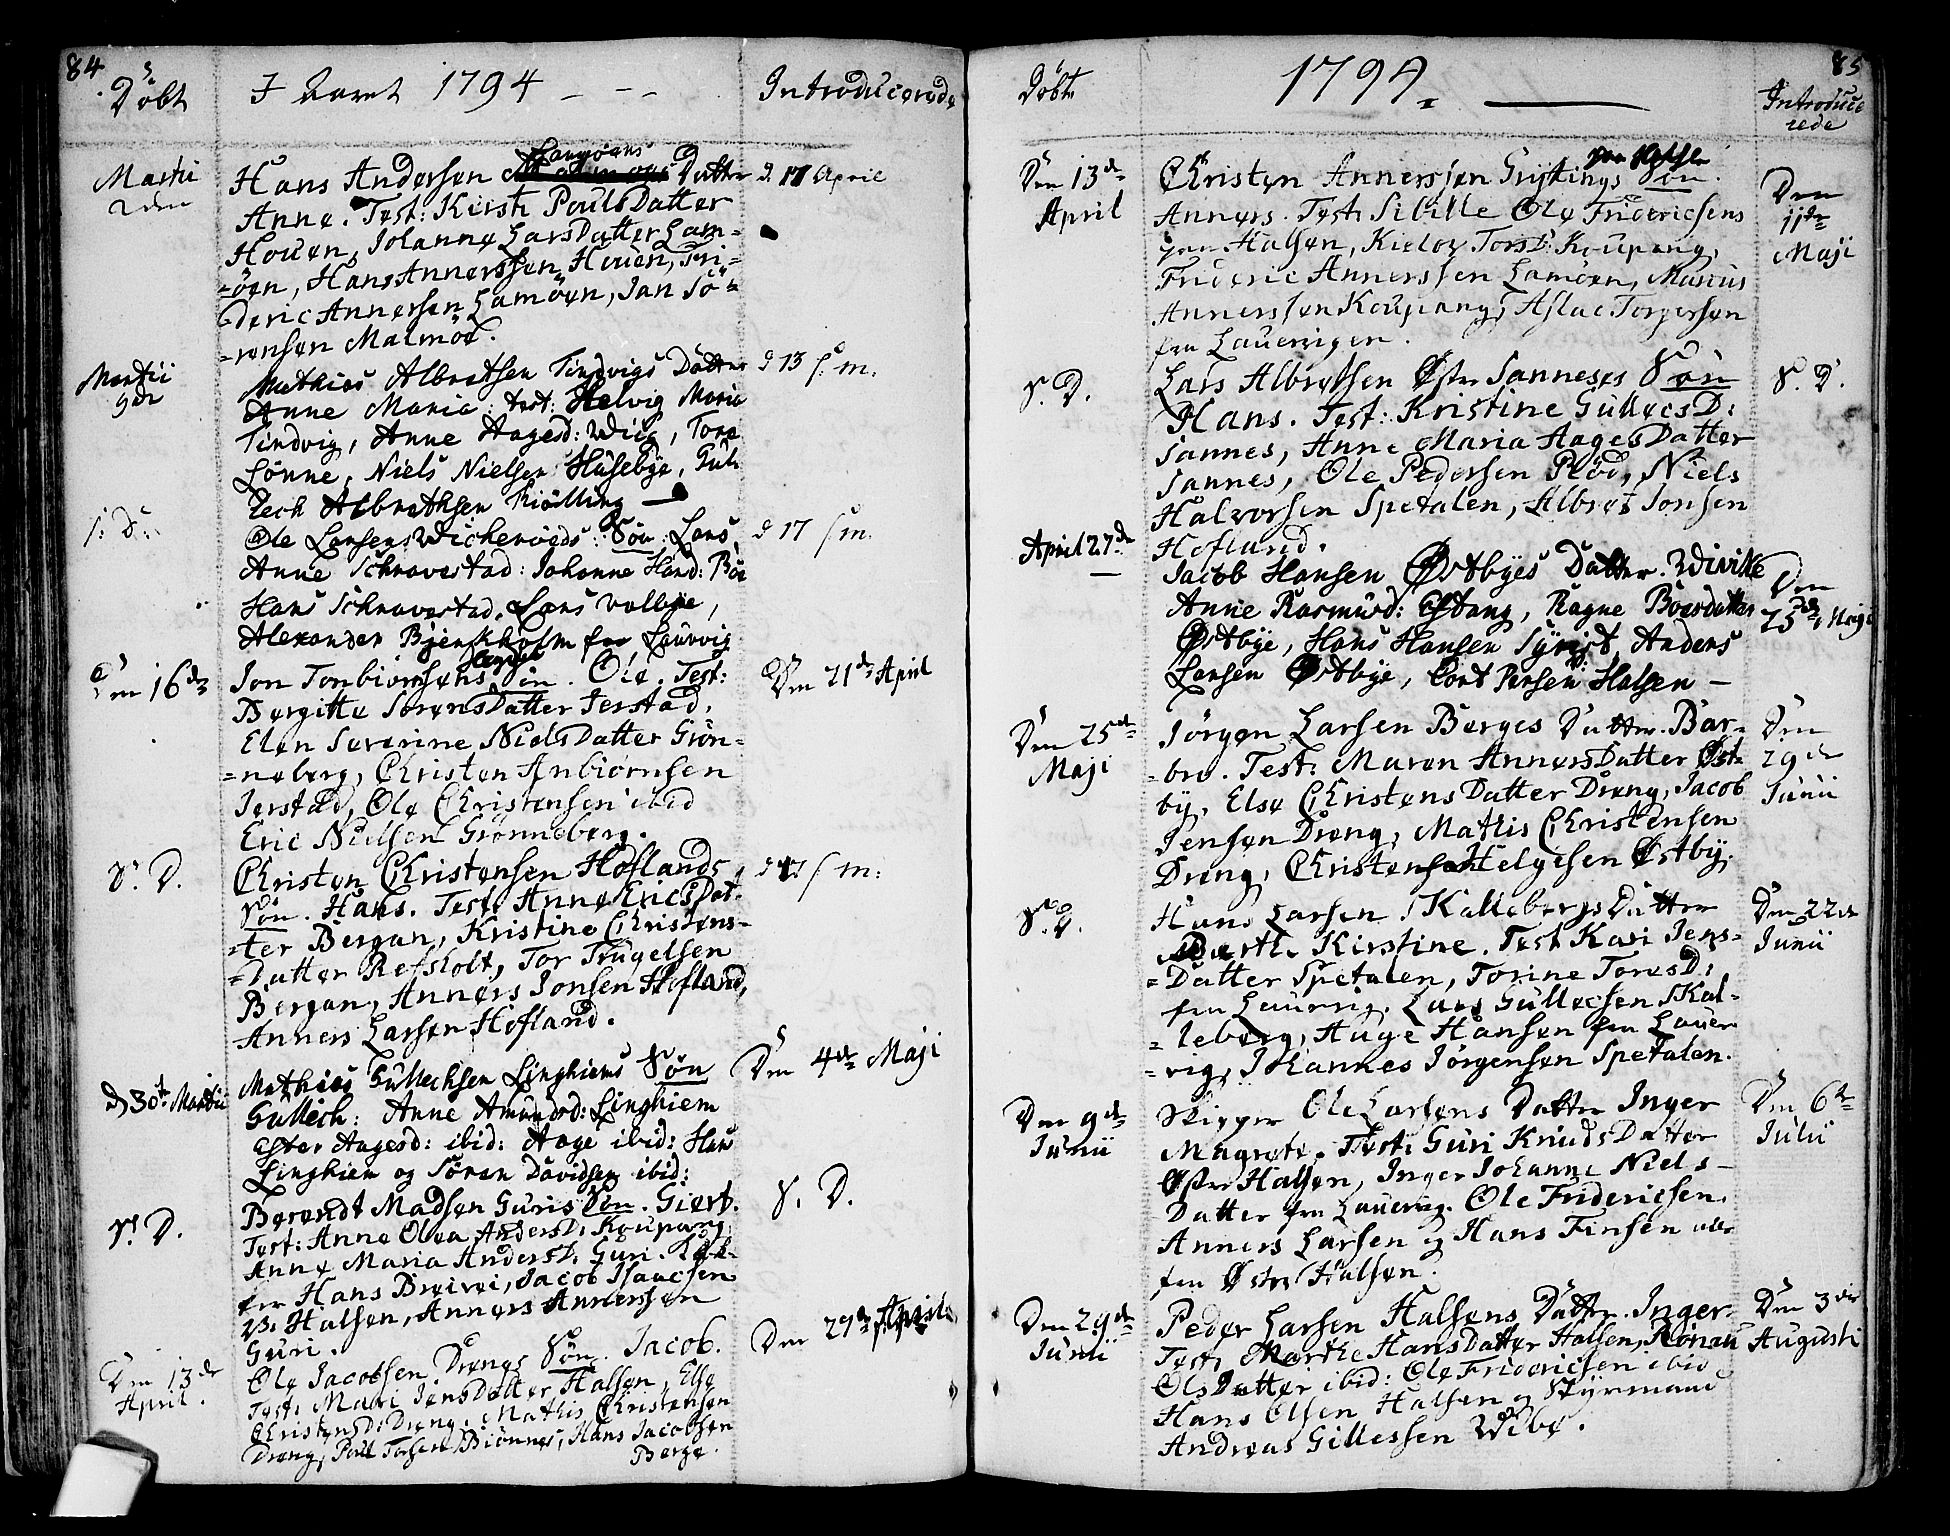 84
Döbt
I Aaret 1794 - - -
Introducerede
Martii
2den
Hans Andersen Lamöens Datter
d. 17 April
Anne. Test: Kirsti Pouls Datter
Houen, Johanne Lars Datter Lam=
=öen, Hans Annerssen Houen, Fri=
deric Annersen Lamöen, Jan Sö=
=rensen Malmöe.
Martii
9de
Mathias Albretsen Tindvigs Datter
d 13 s. m.
Anne Maria: test: Helvig Maria
Tindvig, Anne Aagesd: Wiig, Tore
Lönne, Niels Nielsen Husebye, Gul=
lech Albrethsen Kiölling
s: D:
Ole Larsens Wicheröeds: Sön: Lars,
d 17 s m.
Anne Schravestad: Johanne Hansd: Böe
Hans Schravestad, Lars Valbye,
Alexander Bjenkholm fra Laurvig
Den 16de
Jon Tonbiörnsens Sön. Ole. Test:
Den 21de April
Bergitte Sörens Datter Jerstad.
Elen Severine Niels Datter Grön=
=neberg, Christen Anbiörnsen
Jerstad, Ole Christensen ibid
Eric Nielsen Grönneberg.
S. D.
Christen Christensen Hoflands
d 17 s m:
Sön. Hans. Test: Anne Erics Dat=
=ter Bergan, Kristine Christens=
=Datter Refsholt, Tor Trugelsen
Bergan, Anners Jonsen Hofland,
Anners Larsen Hofland.
d 30te Martii
Mathias Gullechsen Linghiems Sön
Den 4de Maji
Gullech: Anne Amundsd: Linghiem
Ester Aagesd: ibid: Aage ibid: Hans
Linghiem og Sören Davidsen ibid:
S. D.
Berendt Madsen Guris Sön. Giert.
S. D.
Test: Anne Olea Anders D: Koupang,
Anne Maria Anders D. Guri.
Hans Breivei, Jacob Isaacsen
V. Halsen, Anners Annerssen
Guri.
Den 13de
April.
Ole Jacobsen Drengs Sön. Jacob.
Den 27de April
Test: Mari Jens Datter Halsen, Else
Christens D: Dreng, Mathis Christensen
Dreng, Poul Torsen Biönnes, Hans Jacobsen
Berge.
85
Döbte
1794.
Introduce
rede
Den 13de
April
Christen Annerssen Gristings Sön.
Den
11te
Maji
Anners. Test: Sibille Ole Fridericsens
Halsen, Kieloy Tors D: Koupang,
Frideric Annerssen Lamöen, Marius
Annerssen Koupang, Aslac Torgersen
fra Lauervigen.
S. D.
Lars Albretsen Öster Sanneses Sön
S. D.
Hans. Test: Kristine Gullecs D:
Sannes, Anne Maria Aages Datter
Sannes, Ole Pedersen Röd, Niels
Halvorsen Spetalen, Albret Jonsen
Hofland.
April 27de
Jacob Hansen Östbyes Datter. Wivike
Den
25de Maji
Anne Rasmusd: Östang, Ragne Boersdatter
Östbye, Hans Hansen Syrist, Anders
Larsen Östbye, Cort Pensen Halsen
Den 25de
Maji
Jörgen Larsen Berges Datter. Bar=
Den
29de
Junii
=bro. Test: Maren Anners Datter Öst=
by, Else Christens Datter Dreng, Jacob
Jensen Dreng, Mathis Christensen
Dreng, Christen Helgesen Östby.
S. D.
Hans Larsen Skallebergs Datter
Den 22de
Junii
Marthe Kirstine. Test Kari Jens=
=Datter Spetalen, Torine Tores D:
fra Laurvig, Lars Gullecsen Skal=
=leberg, Auge Hansen fra Lauer=
=vig, Johannes Jörgensen Spetalen.
Den 9de
Junii
Skipper Ole Larsens Datter Inger
Den 6te
Julii
Magrete. Test: Guri Knuds Datter
Öster Halsen, Inger Johanne Niels=
Datter fra Lauervig. Ole Fridericsen,
Anners Larsen og Hans Finsen alle
fra Öster Halsen.
Den 29de
Junii
Peder Larsen Halsens Datter. Inger
Den 3die
Augusti
Test: Marthe Hans Datter Halsen, Ronau
Ols Datter ibid: Ole Fridericsen ibid
Hans Olsen Halsen og Styrmand
Andreas Gillessen Wibe.